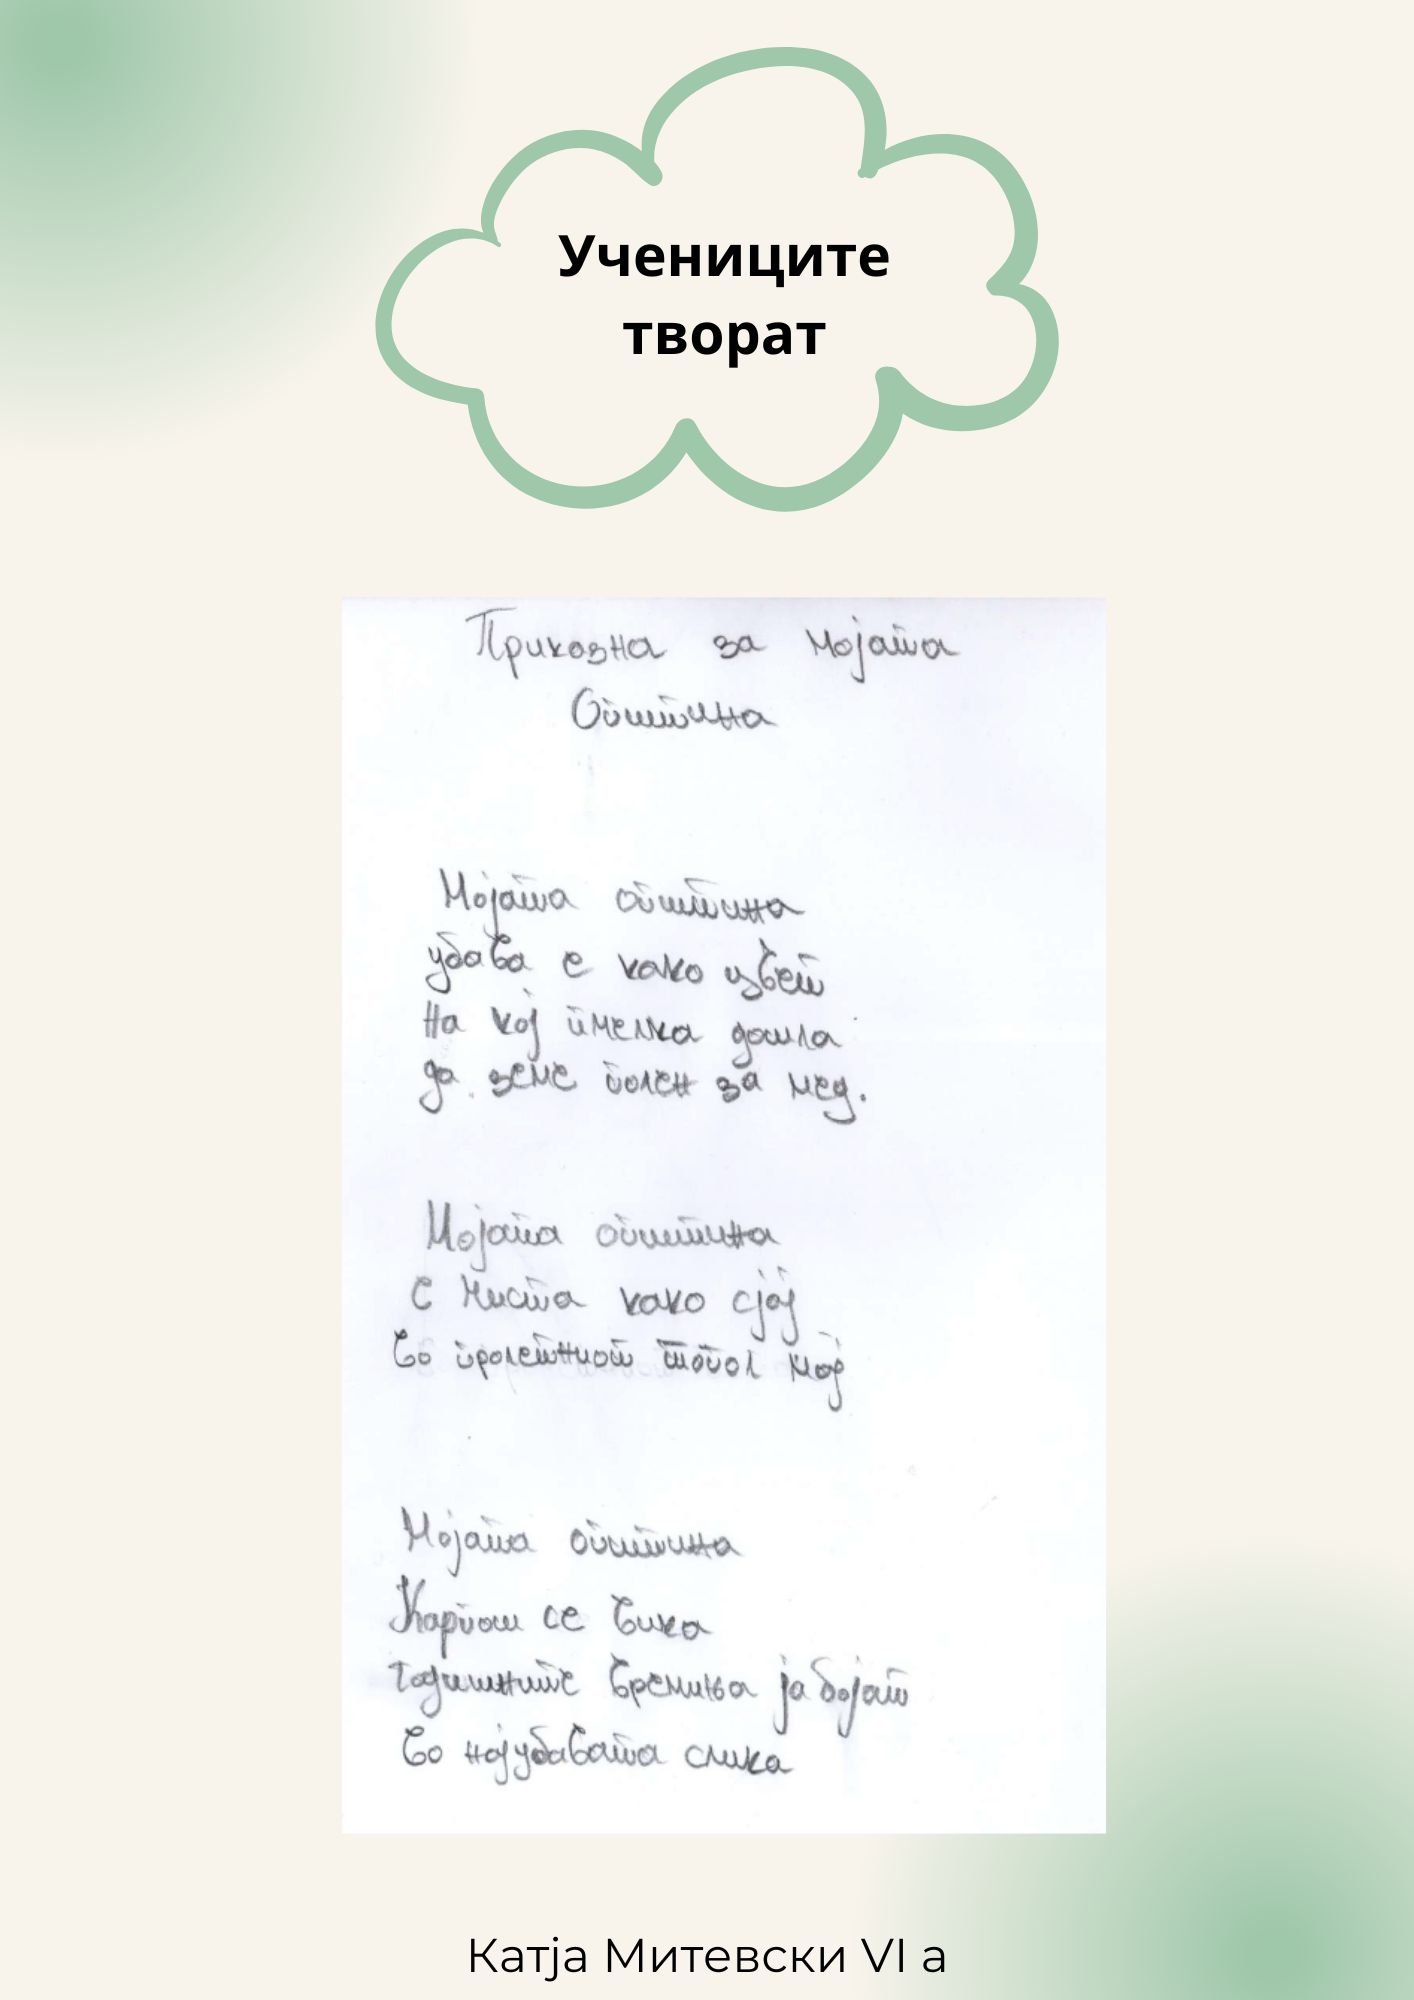 Учениците
творат
Приказна за мојата
Општина
Мојата општина
убава е како цвет
На кој пчелка дошла
да земе полен за мед.
Мојата општина
е чиста како сјај
Во пролетниот топол мај
Мојата општина
Карпош се вика
Годишните времиња ја бојат
Во најубавата слика
Катја Митевски VI а